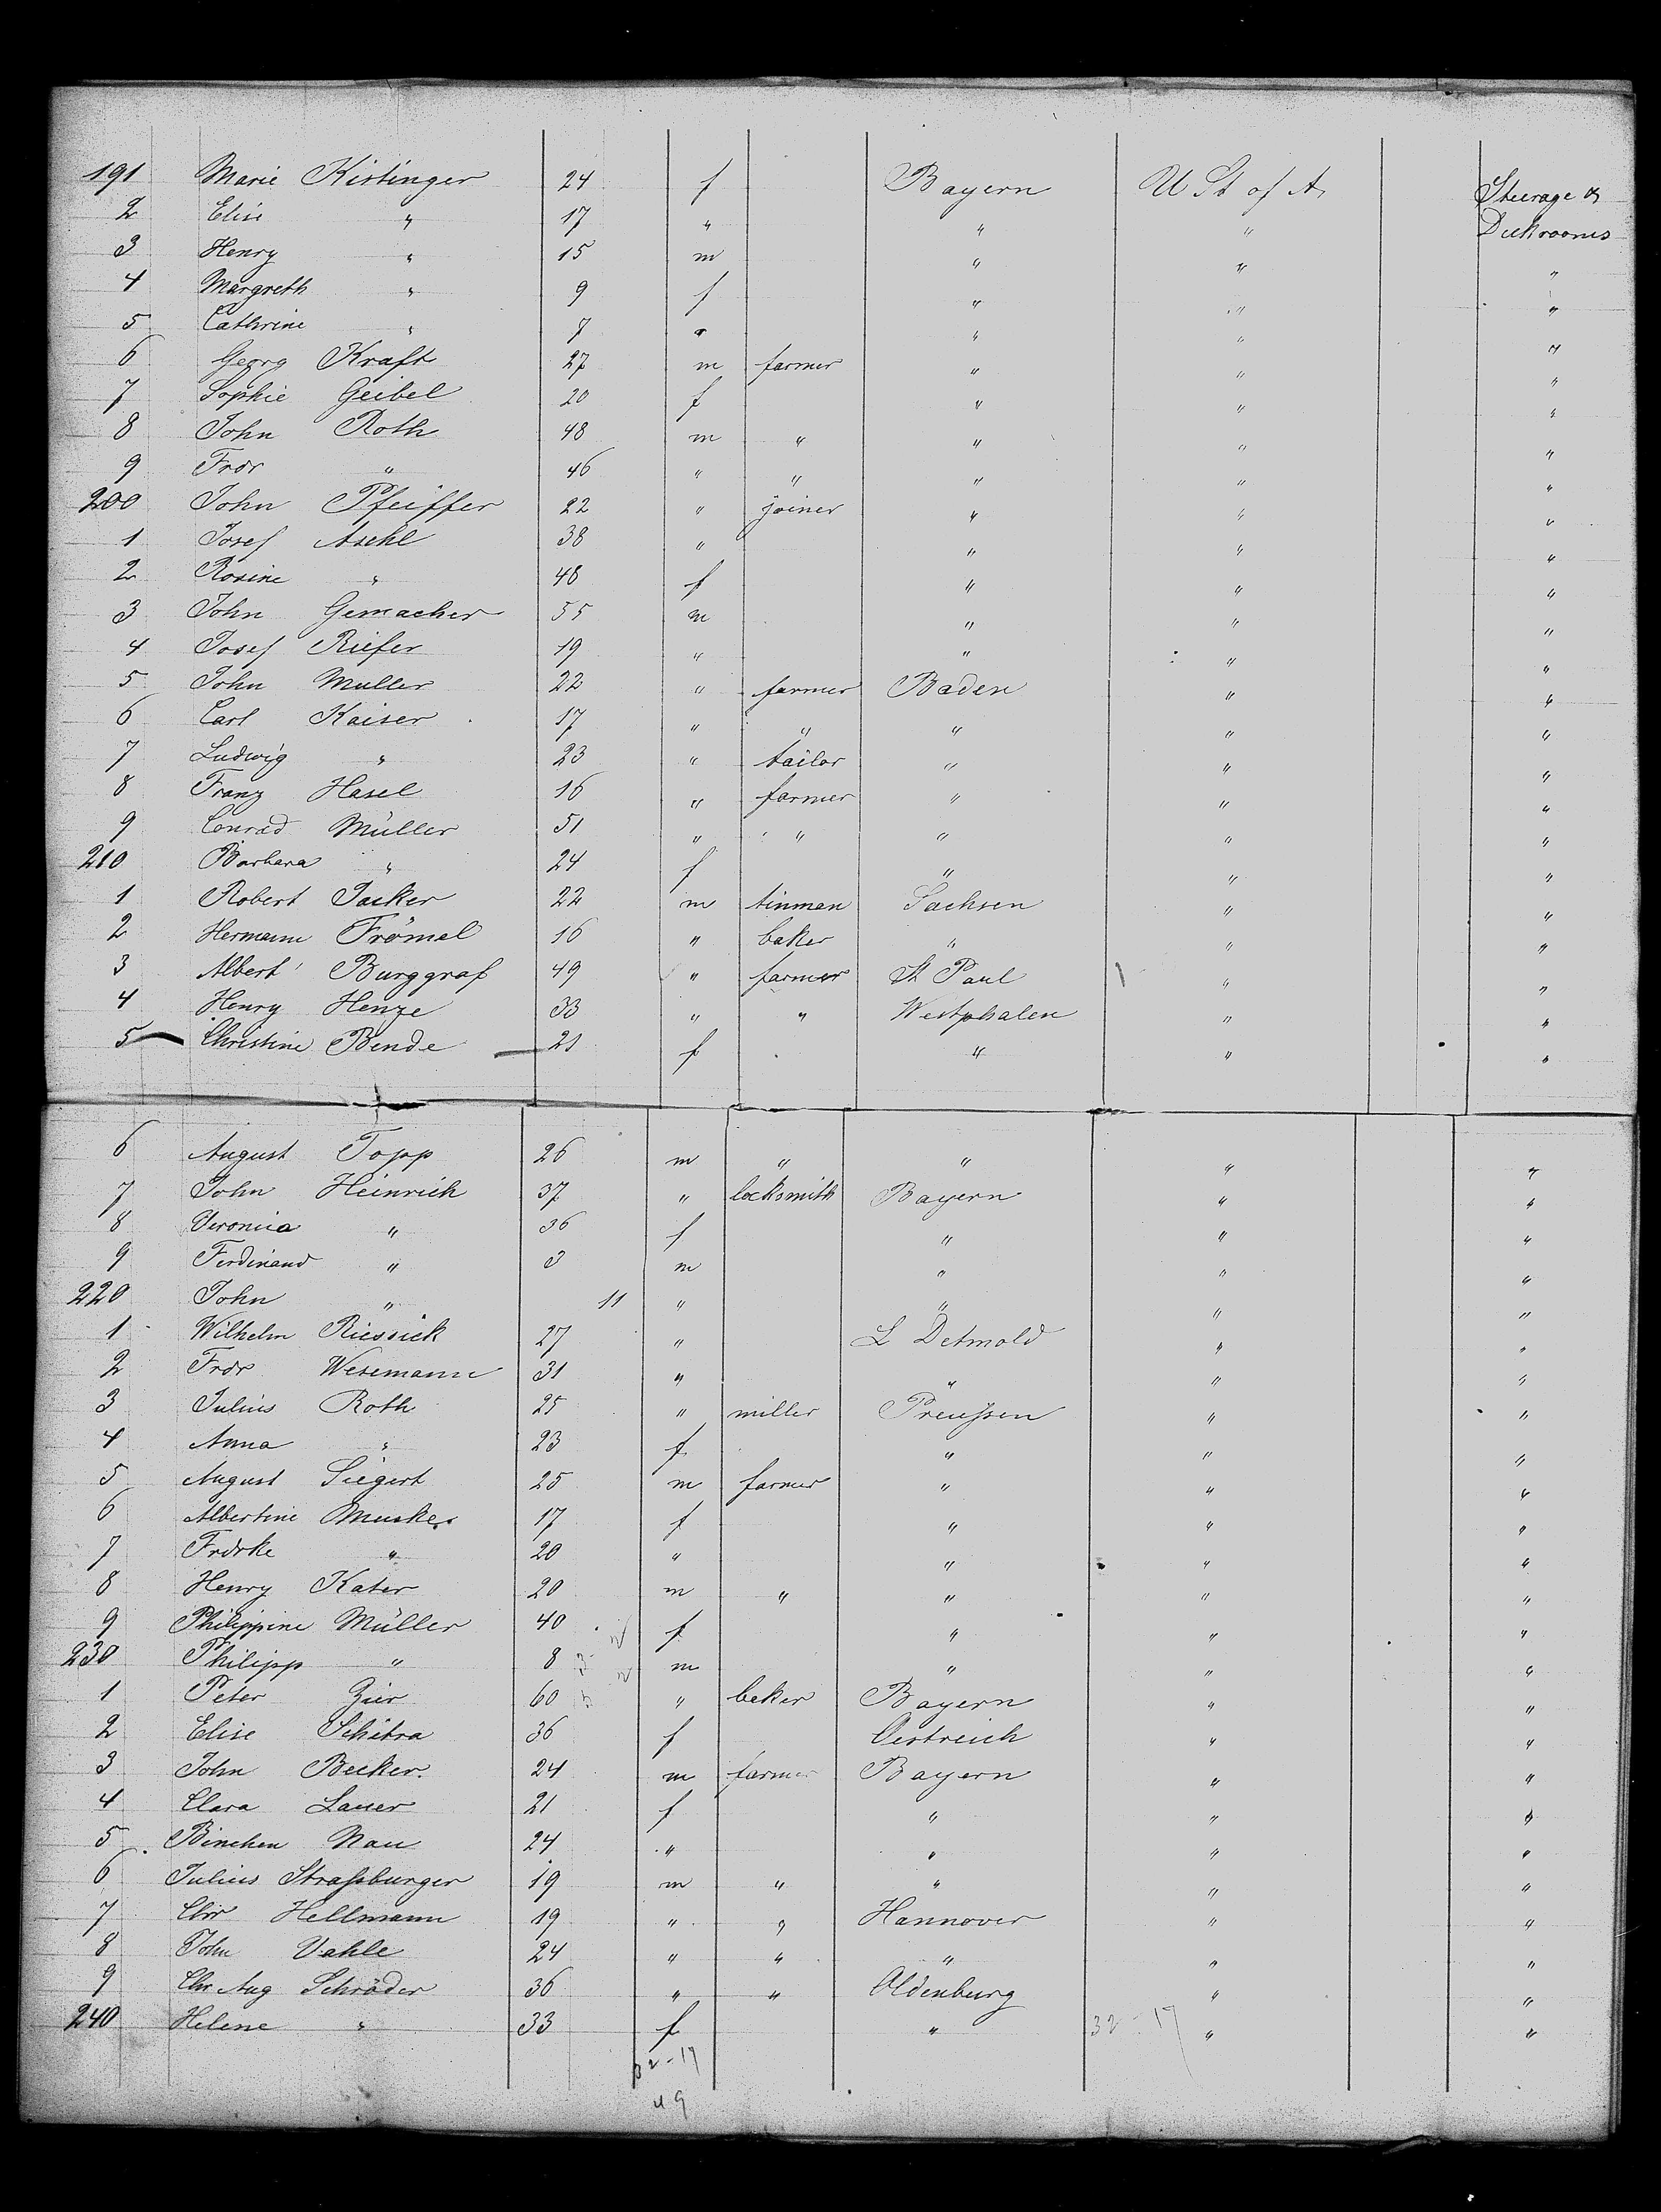 191 Marie Kistinger 24 f Bayern U St of A. Steerage &
2 Elise " 17 " " " Deckrooms
3 Henry " 15 m " " "
4 Margreth " 9 f " " "
5 Cathrine " 7 " " " "
6 Georg Kraft 27 m farmer " " "
7 Sophie Geibel 20 f " " "
8 John Roth 48 m " " " "
9 Frdr " 46 " " " " "
200 John Pfeiffer 22 " joiner " " "
1 Josef Aschl 38 " " " "
2 Rosine " 48 f " " "
3 John Gemacher 55 m " " "
4 Josef Riefer 19 " " " "
5 John Muller 22 " farmer Baden " "
6 Carl Kaiser 17 " " " " "
7 Ludwig " 23 " tailor " " "
8 Franz Hasel 16 " farmer " " "
9 Conrad Müller 51 " " " " "
210 Barbara " 24 f " " "
1 Robert Jacker 22 m tinman Sachsen " "
2 Hermann Frömel 16 " baker " " "
3 Albert Burggraf 49 " farmer St Paul " "
4 Henry Henze 33 " " Westphalen " "
5 Christine Bende 21 f " " "
6 August Topp 26 m " " " "
7 John Heinrich 37 " locksmith Bayern " "
8 Veronica " 36 f " " "
9 Ferdinand " 3 m " " "
220 John " 11 " " " "
1 Wilhelm 27 " L Detmold " "
2 Frdr Wesemann 31 " " " "
3 Julius Roth 25 " miller Preußen " "
4 Anna " 23 f " " "
5 August Siegert 25 m farmer " " "
6 Albertine 17 f " " "
7 Frdrke " 20 " " " "
8 Henry Kater 20 m " " " "
9 Philippine Müller 40 f " " "
230 Philipp " 8 m " " "
1 Peter Zier 60 " beker Bayern " "
2 Elise Schitra 36 f Oestreich " "
3 John Becker 24 m farmer Bayern " "
4 Clara Lauer 21 f " " "
5 Binchen Nau 24 " " " "
6 Julius Straßburger 19 m " " " "
7 Chr Hellmann 19 " " Hannover " "
8 John Vahle 24 " " " " "
9 Chr Aug Schröder 36 " " Oldenburg " "
240 Helene " 33 f " 32-17 " "
32-17
49